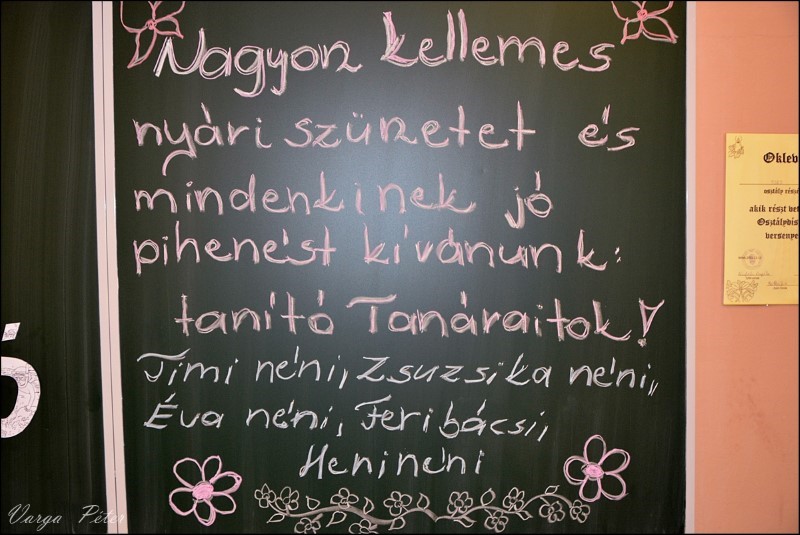 Nagyon kellemes
nyári szünetet és
mindenkinek jó
pihenést kívánunk:
tanító Tanáraitok!
Timi néni, Zsuzsika néni,,
Éva néni, Feri bácsi,
Heni néni
Oklev
osztály rész
akik részt vet
Osztályvis
versenye
Varga Péter